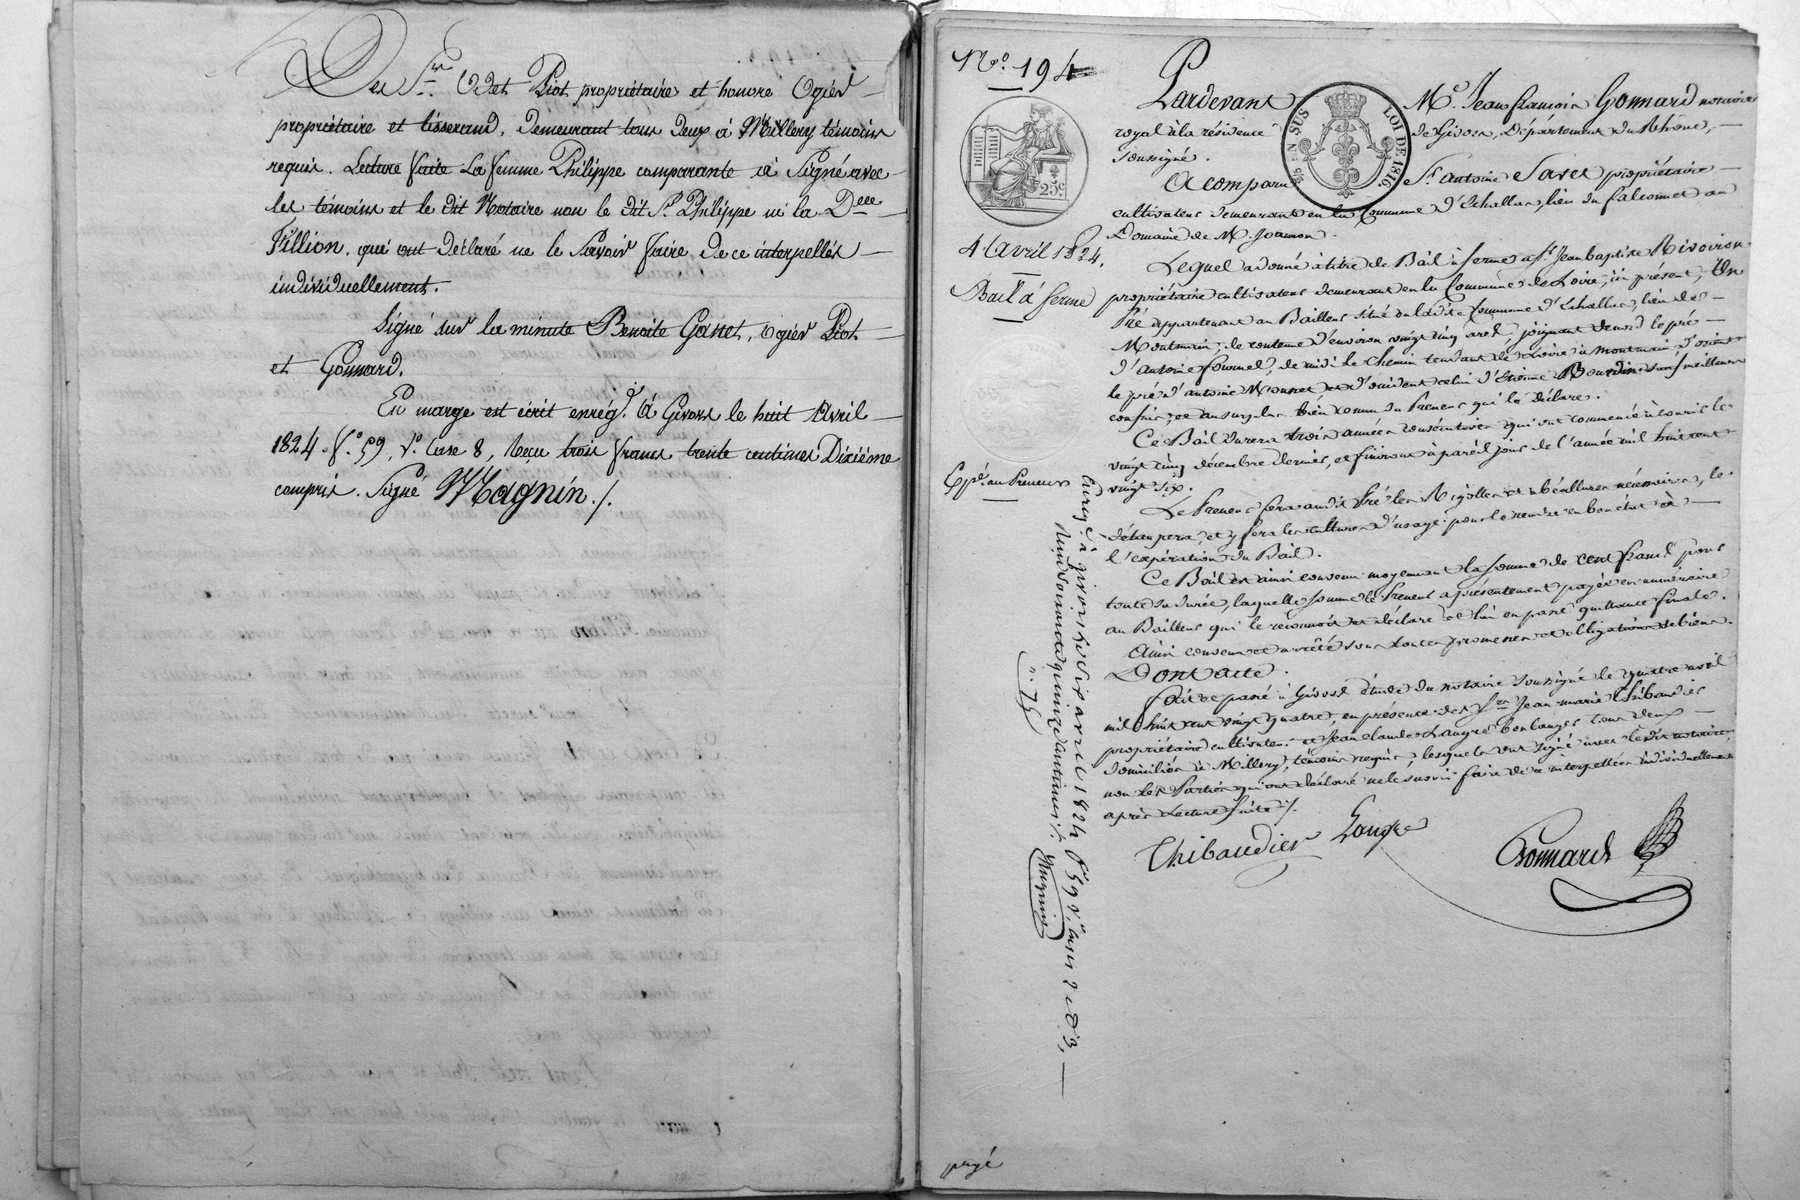 Des Srs Odet Piot propriétaire et honoré Ogier
propriétaire et tisserand, demeurant tous deux à Millery témoins
requis. Lecture faite La femme Philippe comparante a Signé avec
les témoins et le dit Notaire non le dit Sr. Philippe ni la Dlle
Villion, qui ont déclaré ne le Savoir faire de ce interpellés
individuellement.
Signé sur la minute Benoite Ganet, Ogier Piot
et Gonnard.
En marge est écrit enrég.é à Givors le huit Avril
1824. f.o 59, v.o Case 8, Reçu trois francs trente centimes Dixième
compris. Signé Magnin ./.
No. 194
25c
4 Avril 1824.
Bail à ferme
Expé. au Preneur
payé
EN SUS
LOI DE 1816
Pardevant Me. Jean françois Gonnard notaire
royal à la résidence de Givors, Département du Rhône,
soussigné.
A comparu Sr. antoine propriétaire
cultivateur demeurant en la Commune d'Echallas, lieu du falconnet au
Domaine de M.
Lequel a donné à titre de Bail à ferme à Sr. Jean baptiste Rivoiron
propriétaire cultivateur demeurant en la Commune de Loire, ici présent, Un
Pré appartenant au Bailleur situé en ladite Commune d'Echallas, lieu de
Montmain, de contenue d'environ vingt cinq ares, joignant de nord le pré
d'antoine fournel, de midi le Chemin tendant de Loire à montmain, d'orient
le pré d'antoine et d'occident celui d'Etienne Bourdin sauf meilleurs
confins, et au surplus bien connu du Preneur qui le déclare.
Ce Bail durera trois années consécutives qui ont commencé à courir le
vingt cinq décembre dernier, et finiront à pareil jour de l'année mil huit cent
vingt six.
Le Preneur fera audit Pré les Rigolles et nécessaires, le
détaupera, et y fera les cultures d'usage pour le rendre en bon état à
l'expiration du Bail.
Ce Bail est ainsi convenu moyennant la somme de cent francs pour
toute sa durée, laquelle somme le Preneur a présentement payée en numéraire
au Bailleur qui le reconnoit et déclare et lui en passe quittance finale.
Ainsi convenu et arrêté sous toutes promesses et obligations de biens.
Dont acte.
fait et passé à Givors étude du notaire soussigné le quatre avril
mil huit cent vingt quatre, en présence des Srs Jean marie Thibaudier
propriétaire cultivateur et Jean claude Laugre boulanger tous deux
domiciliés à Millery, témoins requis, lesquels ont signé avec le dit notaire,
non les Parties qui ont déclaré ne le savoir faire de ce interpellées individuellement
après Lecture faite ./.
Thibaudier Laugre Gonnard
Enrég.é à givors le six avril 1824 fo. 59 vo. cases 2 et 3,
Reçu soixante quinze centimes ./. Magnin
75